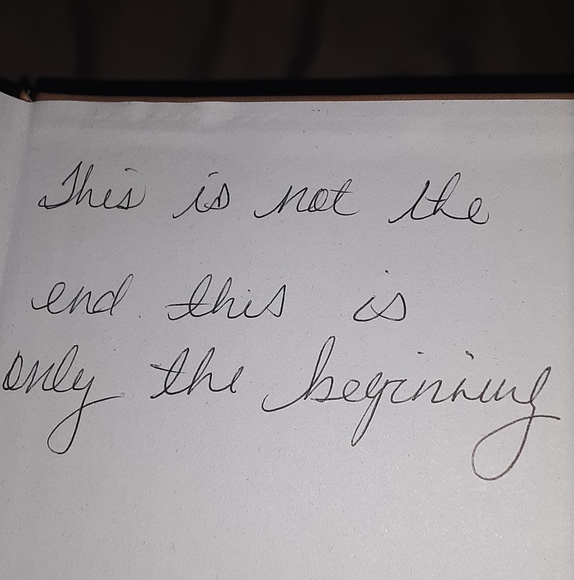 This is not the
end this is
only the beginning